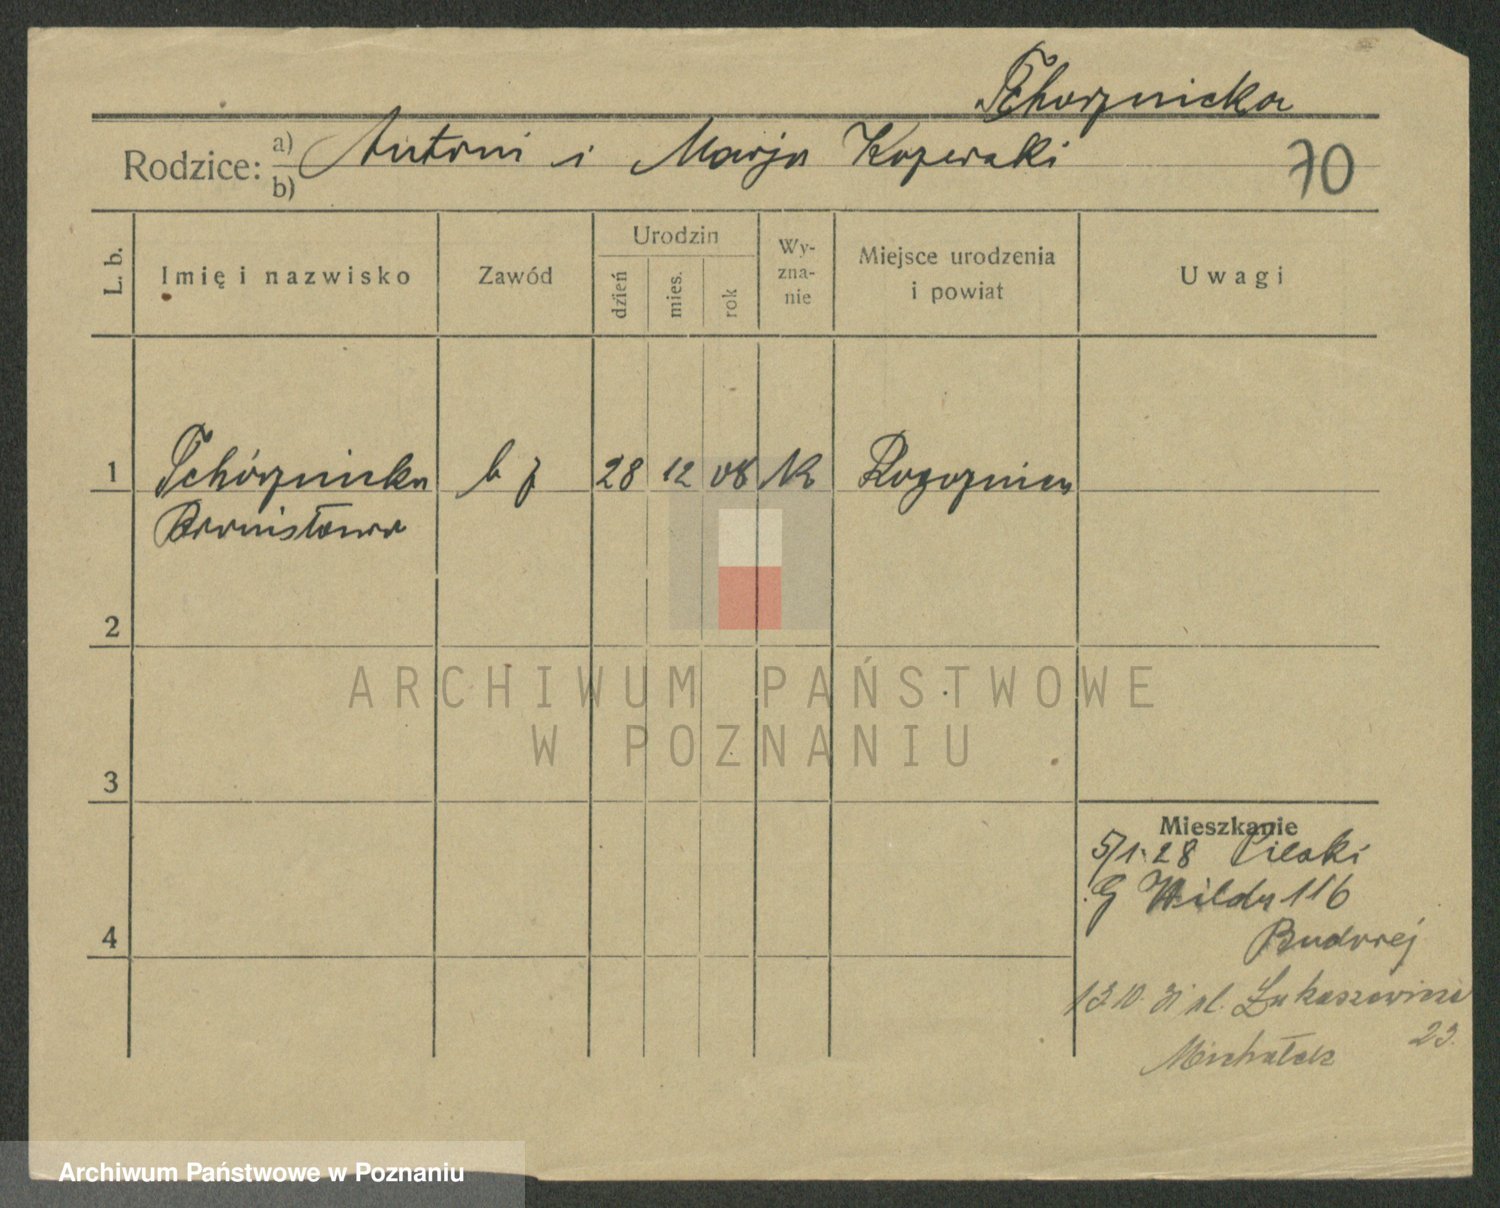 Tchorznicka
Rodzice: a) Antoni i Marja Koperski
b)
70
L. b.
Imię i nazwisko
Zawód
Urodzin
dzień
mies.
rok
Wy-
zna-
nie
Miejsce urodzenia
i powiat
Uwagi
1 Tchórznicka b z 28 12 08 K
Bronisława
2
3
4
Mieszkanie
5/1 28 Pilski
G Wilda 116
13.10.31 ul. Łukaszewicza
23.
Michałek
ARCHIWUM PAŃSTWOWE
W POZNANIU
Archiwum Państwowe w Poznaniu